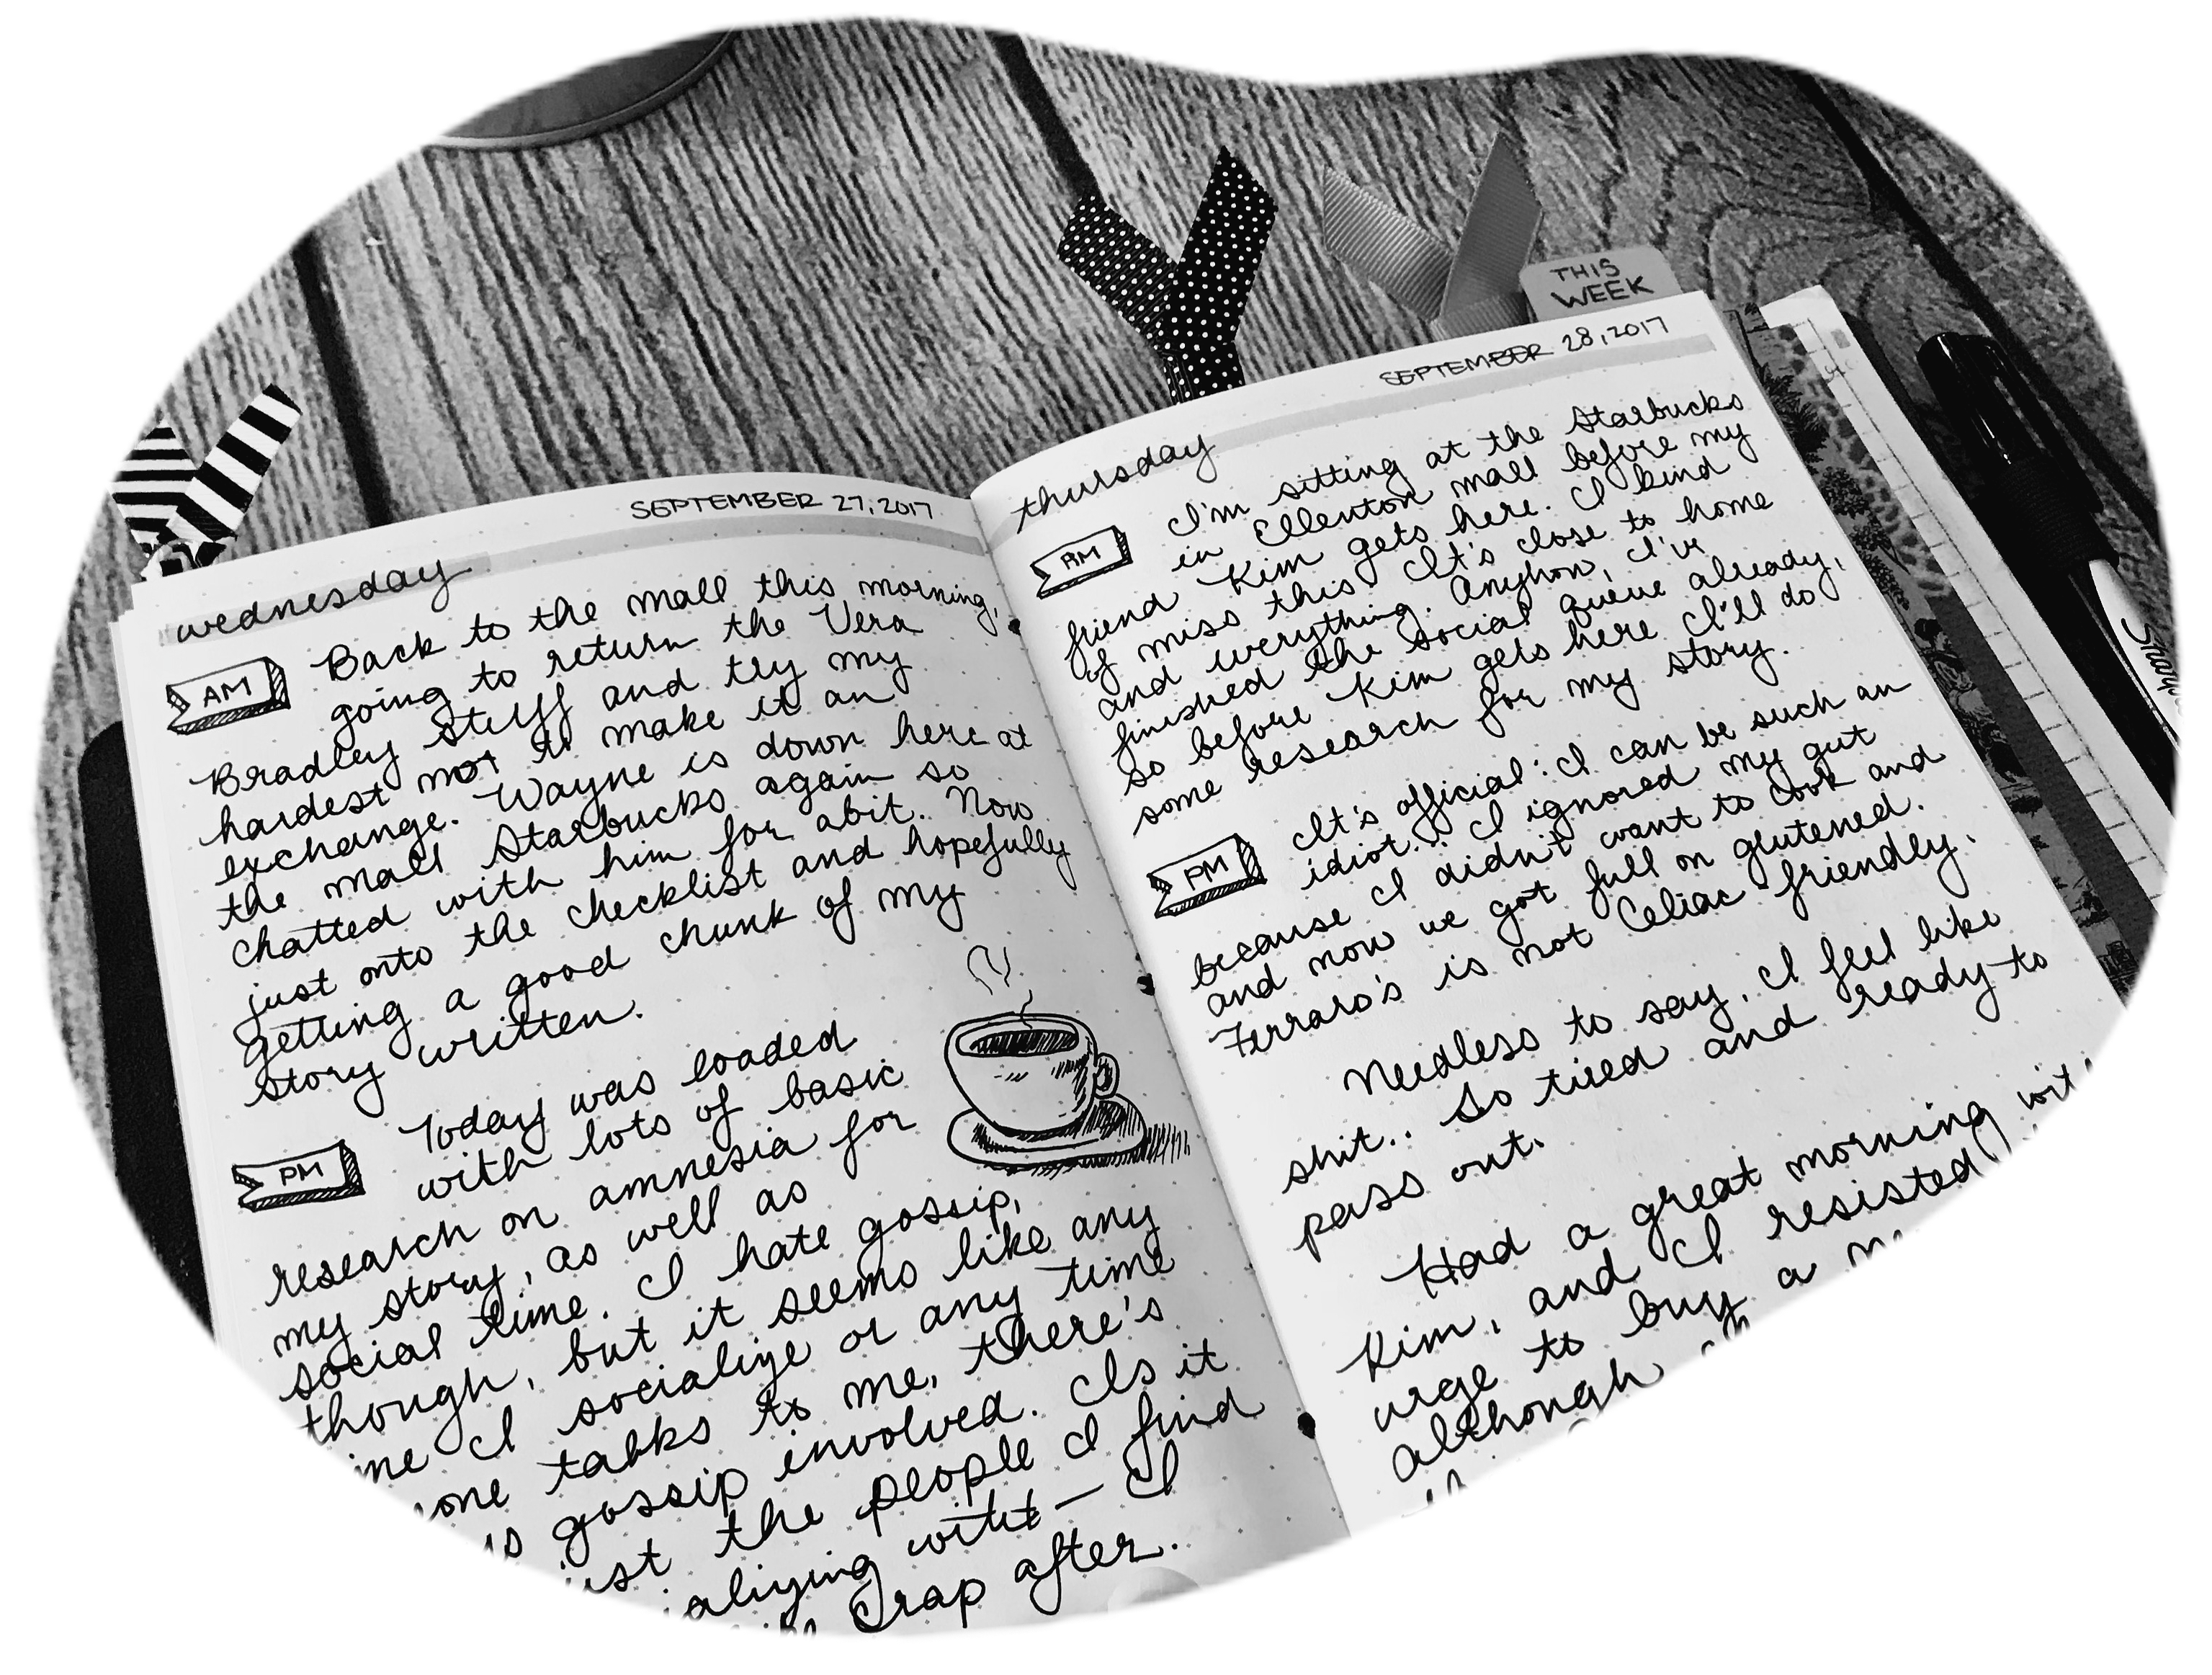 SEPTEMBER 27, 2017
wednesday
AM
Back to the mall this morning,
going to return the Vera
Bradley stuff and try my
hardest not to make it an
exchange. Wayne is down here at
the mall Starbucks again so
chatted with him for abit. Now
just onto the checklist and hopefully
getting a good chunk of my
story written.
PM
Today was loaded
with lots of basic
research on amnesia for
my story, as well as
social time. I hate gossip,
though, but it seems like any
I socialize or any time
talks to me, there's
gossip involved. Is it
the people I find
with — I
crap after.
THIS
WEEK
SEPTEMBER 28, 2017
thursday
AM
I'm sitting at the Starbucks
in Ellenton mall before my
friend Kim gets here. I kind
of miss this. It's close to home
and everything. Anyhow, I've
finished the social queue already,
so before Kim gets here I'll do
some research for my story.
PM
It's official: I can be such an
idiot.. I ignored my gut
because I didn't want to cook and
and now we got full on glutened.
Ferraro's is not Celiac friendly.
Needless to say, I feel like
shit.. So tired and ready to
pass out.
Had a great morning
Kim, and I resisted
urge to buy a
although
Sharpie